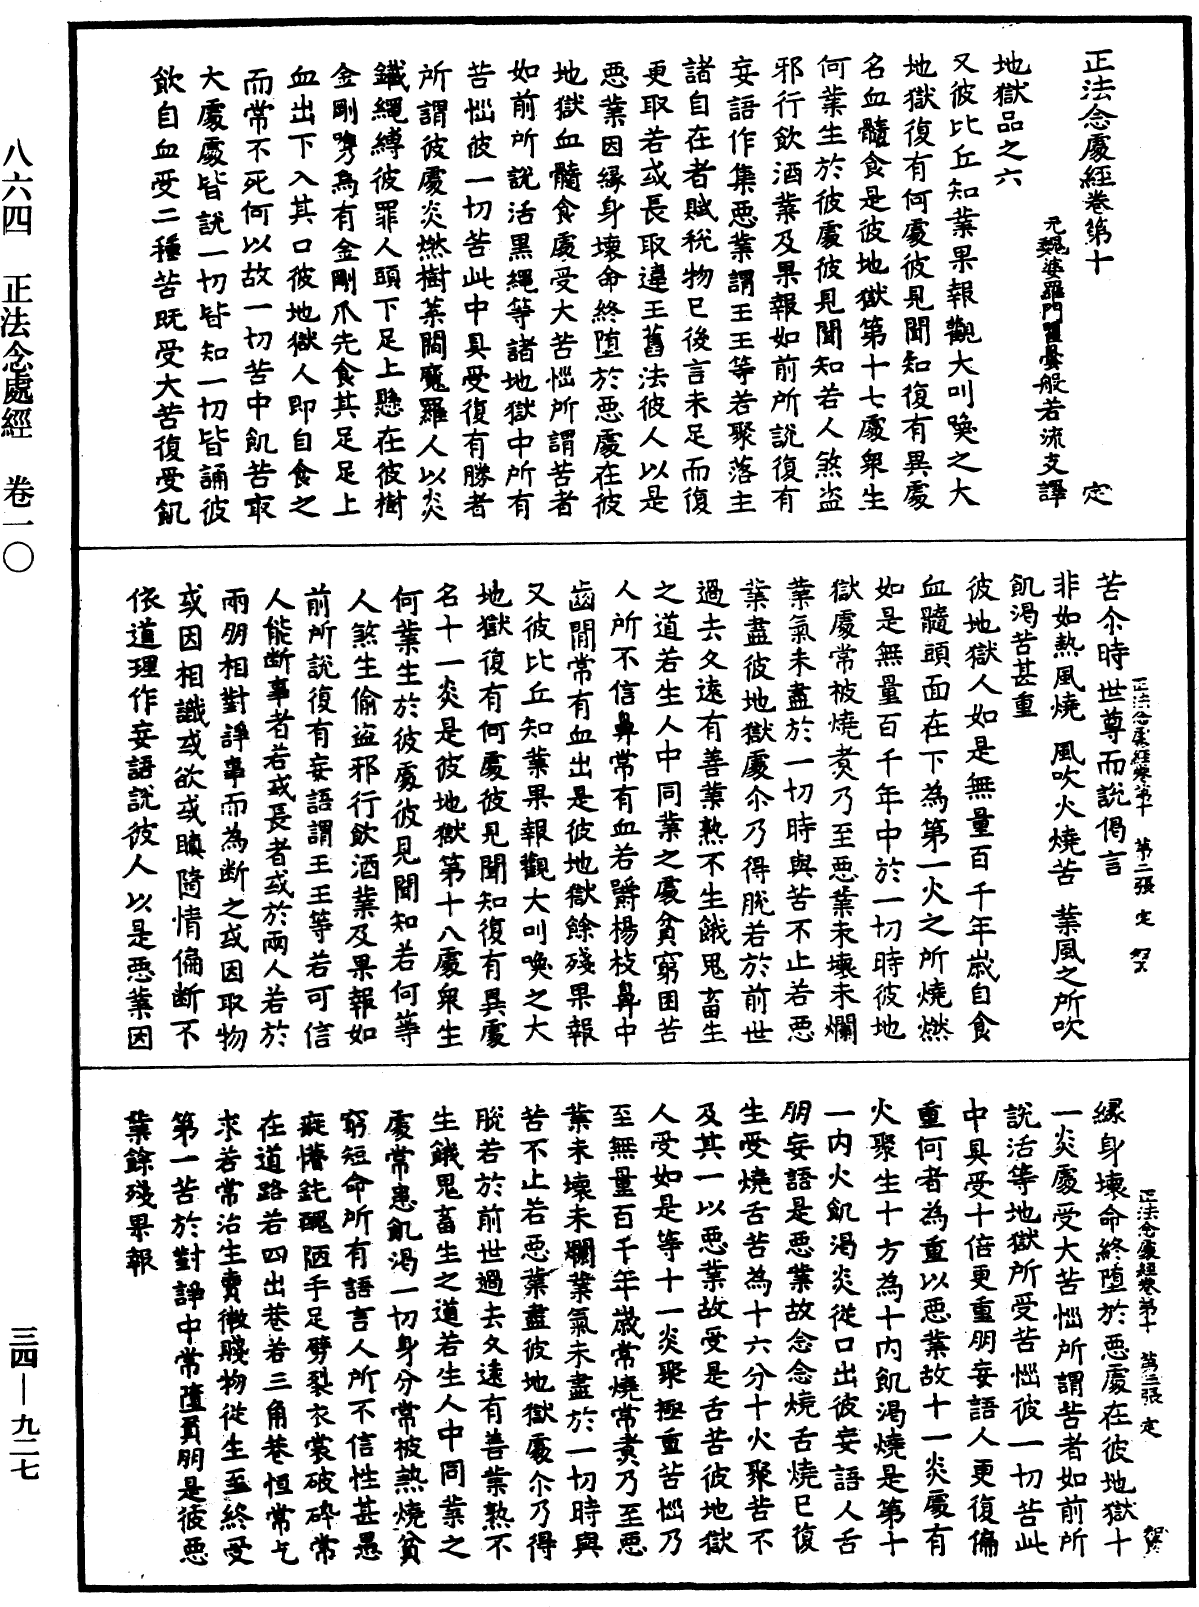 正法念處經卷第十　定
元魏婆羅門瞿曇般若流支譯
地獄品之六
又彼比丘知業果報觀大叫喚之大
地獄復有何處彼見聞知復有異處
名血髓食是彼地獄第十七處衆生
何業生於彼處彼見聞知若人煞盜
邪行飲酒業及果報如前所說復有
妄語作集惡業謂王王等若聚落主
諸自在者賦稅物已後言未足而復
更取若或長取違王舊法彼人以是
惡業因緣身壞命終墮於惡處在彼
地獄血髓食處受大苦惱所謂苦者
如前所說活黑繩等諸地獄中所有
苦惱彼一切苦此中具受復有勝者
所謂彼處炎燃樹葉閻魔羅人以炎
鐵繩縛彼罪人頭下足上懸在彼樹
金剛㭰鳥有金剛爪先食其足足上
血出下入其口彼地獄人即自食之
而常不死何以故一切苦中飢苦㝡
大處皆說一切皆知一切皆誦彼
飲自血受二種苦既受大苦復受飢
苦尒時世尊而說偈言
非如熱風燒　風吹火燒苦　業風之所吹
飢渴苦甚重
彼地獄人如是無量百千年歲自食
血髓頭面在下為第一火之所燒燃
如是無量百千年中於一切時彼地
獄處常被燒煑乃至惡業未壞未爛
業氣未盡於一切時與苦不止若惡
業盡彼地獄處尒乃得脫若於前世
過去久遠有善業熟不生餓鬼畜生
之道若生人中同業之處貧窮困苦
人所不信鼻常有血若嚼楊枝鼻中
齒間常有血出是彼地獄餘殘果報
又彼比丘知業果報觀大叫喚之大
地獄復有何處彼見聞知復有異處
名十一炎是彼地獄第十八處衆生
何業生於彼處彼見聞知若何等
人煞生偷盜邪行飲酒業及果報如
前所說復有妄語謂王王等若可信
人能斷事者若或長者或於兩人若於
兩朋相對諍事而為斷之或因取物
或因相識或欲或瞋隨情偏斷不
依道理作妄語說彼人以是惡業因
正法念處經卷第十　第二張　定
緣身壞命終墮於惡處在彼地獄十
一炎處受大苦惱所謂苦者如前所
說活等地獄所受苦惱彼一切苦此
中具受十倍更重朋妄語人更復偏
重何者為重以惡業故十一炎處有
火聚生十方為十內飢渴燒是第十
一內火飢渴炎從口出彼妄語人舌
朋妄語是惡業故念念燒舌燒已復
生受燒舌苦為十六分十火聚苦不
及其一以惡業故受是舌苦彼地獄
人受如是等十一炎聚極重苦惱乃
至無量百千年歲常燒常煑乃至惡
業未壞未爛業氣未盡於一切時與
苦不止若惡業盡彼地獄處尒乃得
脫若於前世過去久遠有善業熟不
生餓鬼畜生之道若生人中同業之
處常患飢渴一切身分常被熱燒貧
窮短命所有語言人所不信性甚愚
癡憒鈍醜陋手足劈裂衣裳破碎常
在道路若四出巷若三角巷恒常乞
求若常治生賣微賤物從生至終受
第一苦於對諍中常墮負朋是彼惡
業餘殘果報
正法念處經卷第十　第三張　定
八六四　正法念處經　卷一〇
三四—九二七